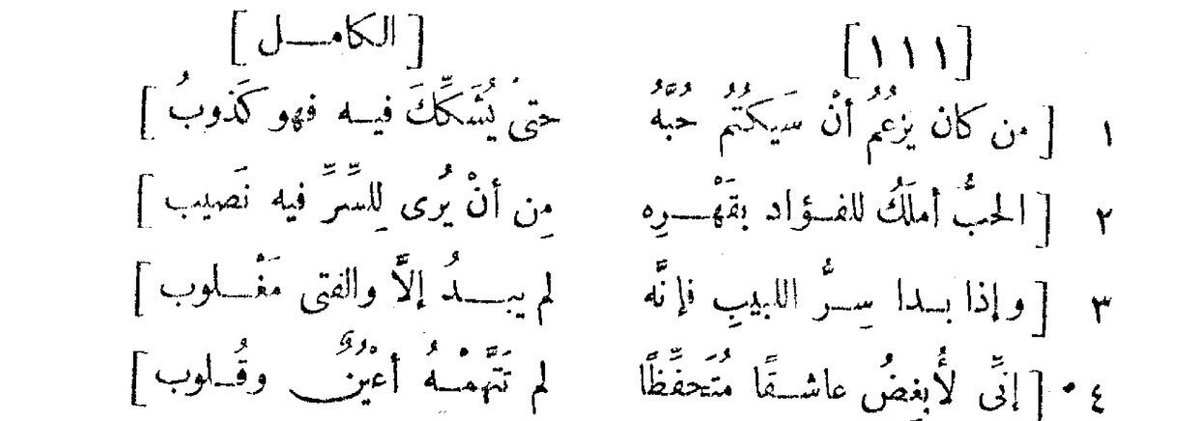 [١١١] [الكامـــل]
١ [من كان يزعُمُ أنْ سَيكتُمُ حُبَّهُ حتىٰ يُشَكِّكَ فيـه فهو كَذوبُ]
٢ [الحبُّ أملَكُ للفـؤاد بقَهْـــرِه مِن أنْ يُرى لِلسِّرِّ فيه نَصيب]
٣ [وإذا بـدا سِـرُّ اللبيبِ فإنَّه لم يبـــدُ إلاَّ والفتى مَغْـلوب]
٤ [إنِّى لأُبغِضُ عاشـقًا مُتَحفِّظًا لم تَتَّهمْـهُ أعْيُنٌ وقُـلوب]